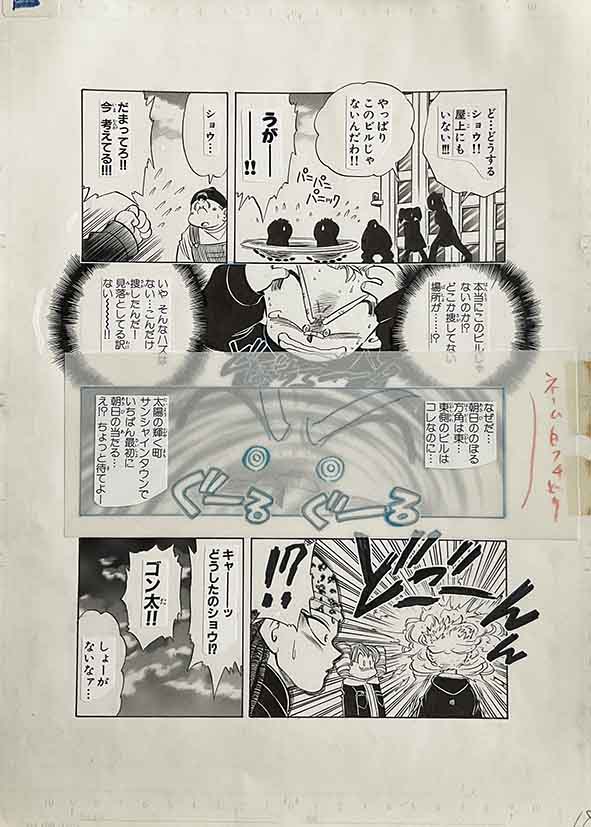 ど…どうする
ショウ!!
屋上にも
いない!!!
やっぱり
このビルじゃ
ないんだわ!!
うがーー!!
パニパニ
パニック
ショウ…
だまってろ!!
今 考えてる!!!
本当にこのビルじゃ
ないのか!?
どこか捜してない
場所が……!?
いや そんなハズは
ない…こんだけ
捜したんだー
見落としてる訳
ない〜〜〜!!
なぜだ…
朝日ののぼる
方角は東…
東側のビルは
コレなのに…
太陽の輝く町
サンシャインタウンで
いちばん最初に
朝日の当たる…
え!? ちょっと待てよー
ぐーるぐーる
ネーム白フチどり
ズドドーーンン
!?
キャーーッ
どうしたのショウ!?
ゴン太!!
しょーが
ないなァ…